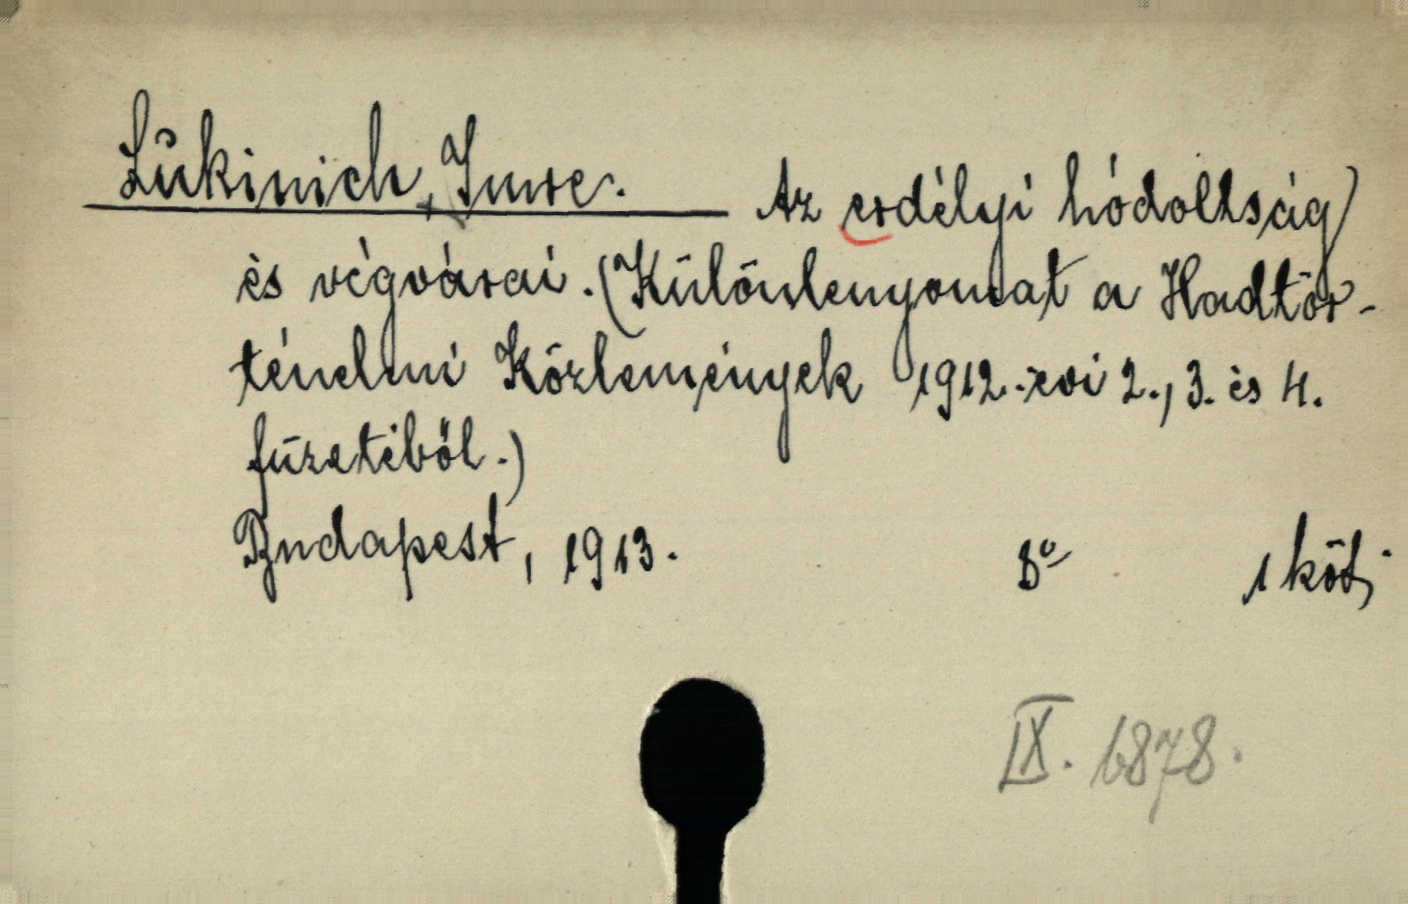 Lukinich, Imre. Az erdélyi hódoltság
és végvárai. (Különlenyomat a Hadtör-
ténelmi Közlemények 1912.-évi 2., 3. és 4.
füzetéből.)
Budapest, 1913. 8° 1 köt.
IX. 6878.